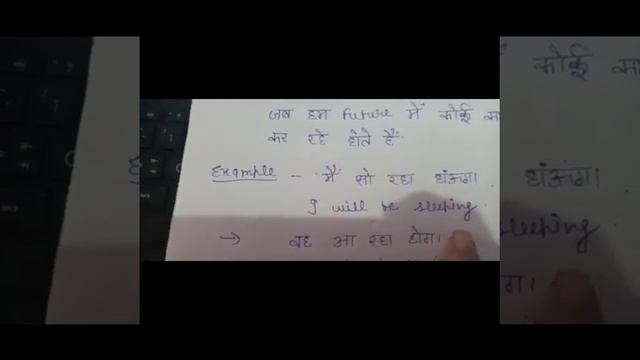 जब हम future में कोई
कर रहे होते हैं
Example - मैं सो रहा होऊंगा।
I will be sleeping.
→ वह आ रहा होगा।